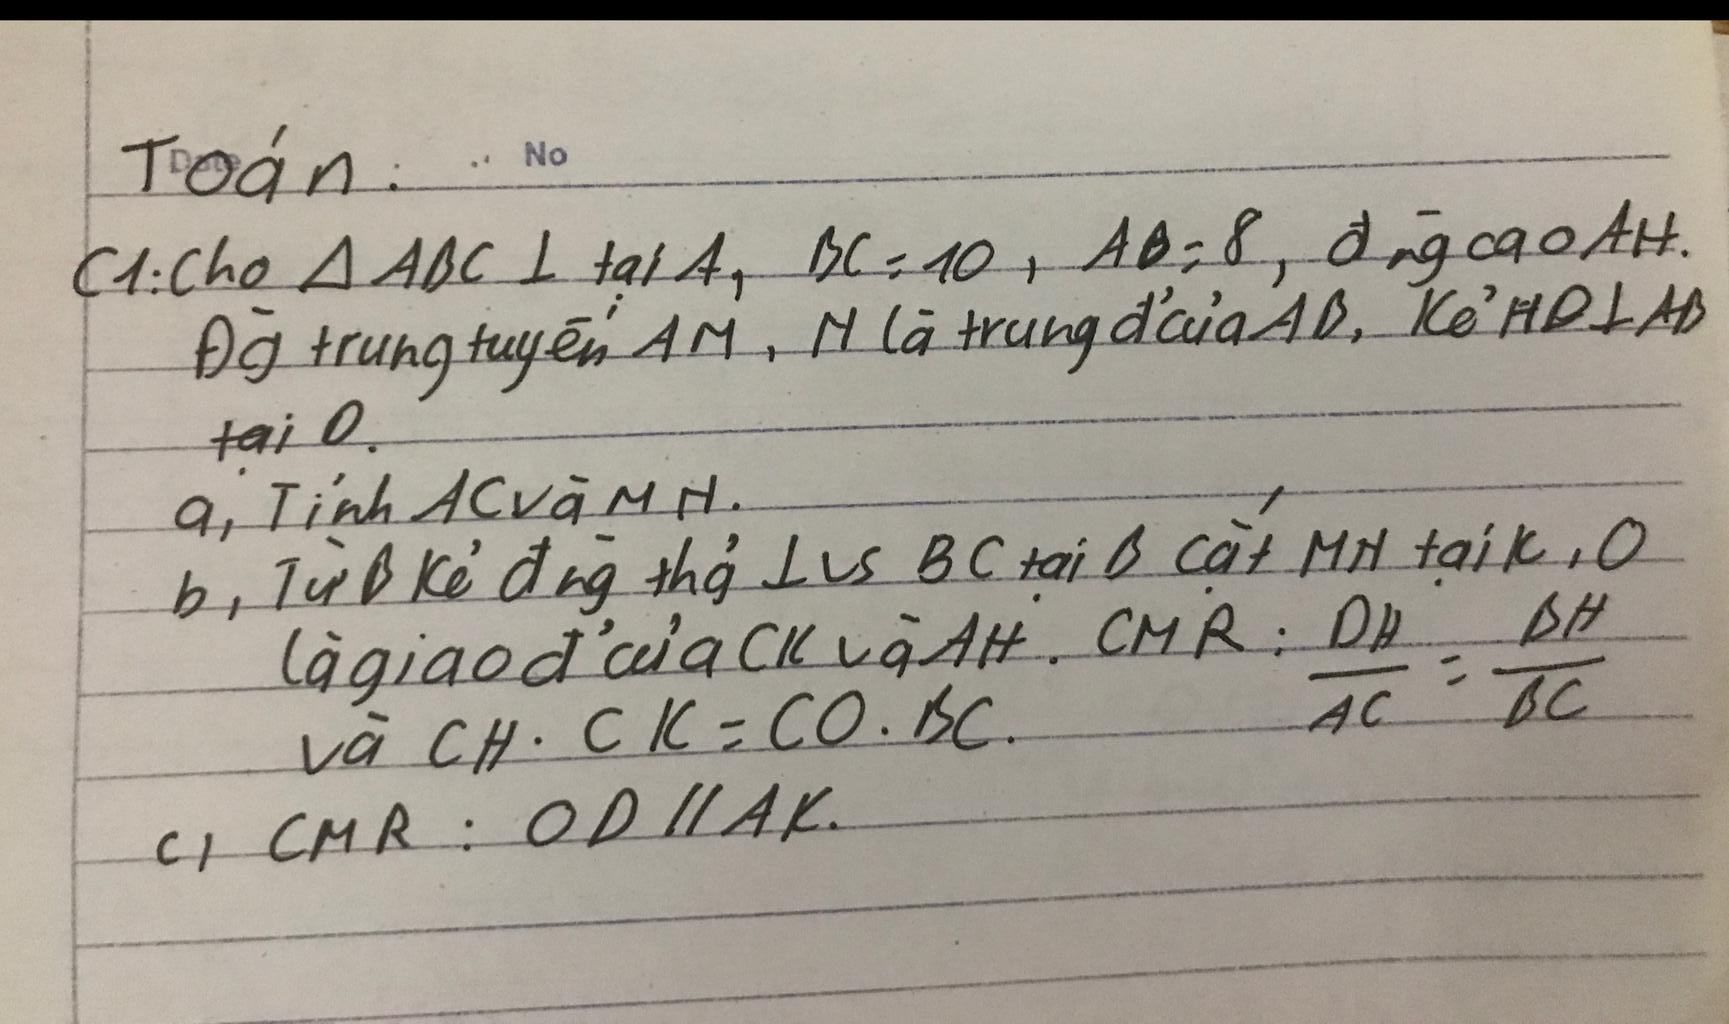 Toán:
Date .. No
C1: Cho Δ ABC ⊥ tại A, BC = 10, AB = 8, đ ng̃ cao AH.
Đg̃ trung tuyến AM, N là trung đ' của AB, Kẻ HD ⊥ AB
tại D.
a, Tính AC và MN.
b, Từ B kẻ đ ng̃ thg̉ ⊥ vs BC tại B cắt MN tại K, O
là giao đ' của CK và AH. CMR: DH/AC = BH/BC
và CH. CK = CO. BC.
c, CMR: OD // AK.